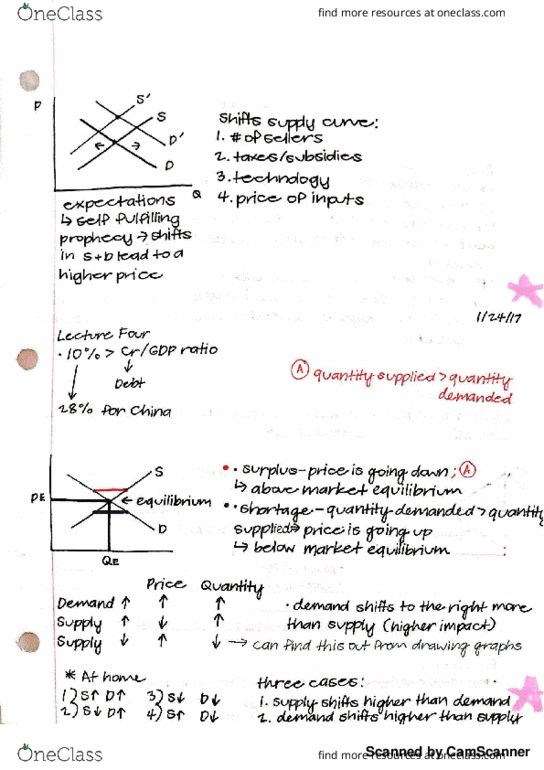 OneClass
find more resources at oneclass.com
P
S'
S
D'
D
Q
Shifts supply curve:
1. # of sellers
2. taxes/subsidies
3. technology
4. price of inputs
expectations
↳ self fulfilling
prophecy → shifts
in S+D lead to a
higher price
1/24/17
Lecture Four
• 10% > Cr/GDP ratio
↓
Debt
28% for China
Ⓐ quantity supplied > quantity
demanded
PE
S
← equilibrium
D
QE
• surplus - price is going down; Ⓐ
↳ above market equilibrium
• shortage - quantity demanded > quantity
supplied → price is going up
↳ below market equilibrium
Price Quantity
Demand ↑ ↑ ↑
Supply ↑ ↓ ↑
Supply ↓ ↑ ↓ → can find this out from drawing graphs
• demand shifts to the right more
than supply (higher impact)
* At home
1) S↑ D↑ 3) S↓ D↓
2) S↓ D↑ 4) S↑ D↓
three cases:
1. supply shifts higher than demand
2. demand shifts higher than supply
OneClass
find more resources at oneclass.com
Scanned by CamScanner